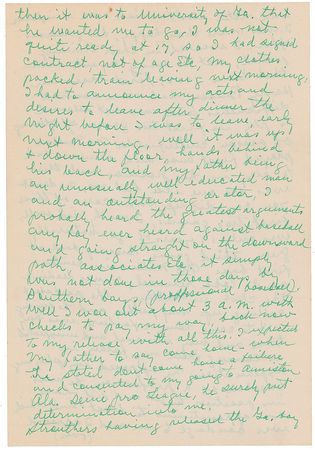 then it was to University of Ga. that
he wanted me to go, I was not
quite ready at 17, so I had signed
contract, not of age Etc. my clothes
packed, train leaving next morning,
I had to announce my acts and
desires to leave after dinner the
night before I was to leave early
next morning, well it was up
+ down the floor, hands behind
his back, and my father being
an unusually well educated man
and an outstanding orator, I
probally heard the greatest arguments
any boy ever heard against baseball
and going straight on the downward
path, associates Etc. it simply
was not done in those days by
Southern boys, (professional baseball.
Well I won out about 3 a.m. with
checks to pay my way, back now
to my release with all this. I expected
my father to say come home - when
he stated dont come home a failure
and consented to my going to Anniston
Ala. Semi pro league, he surely put
determination into me.
Strouthers having released the Ga. boy